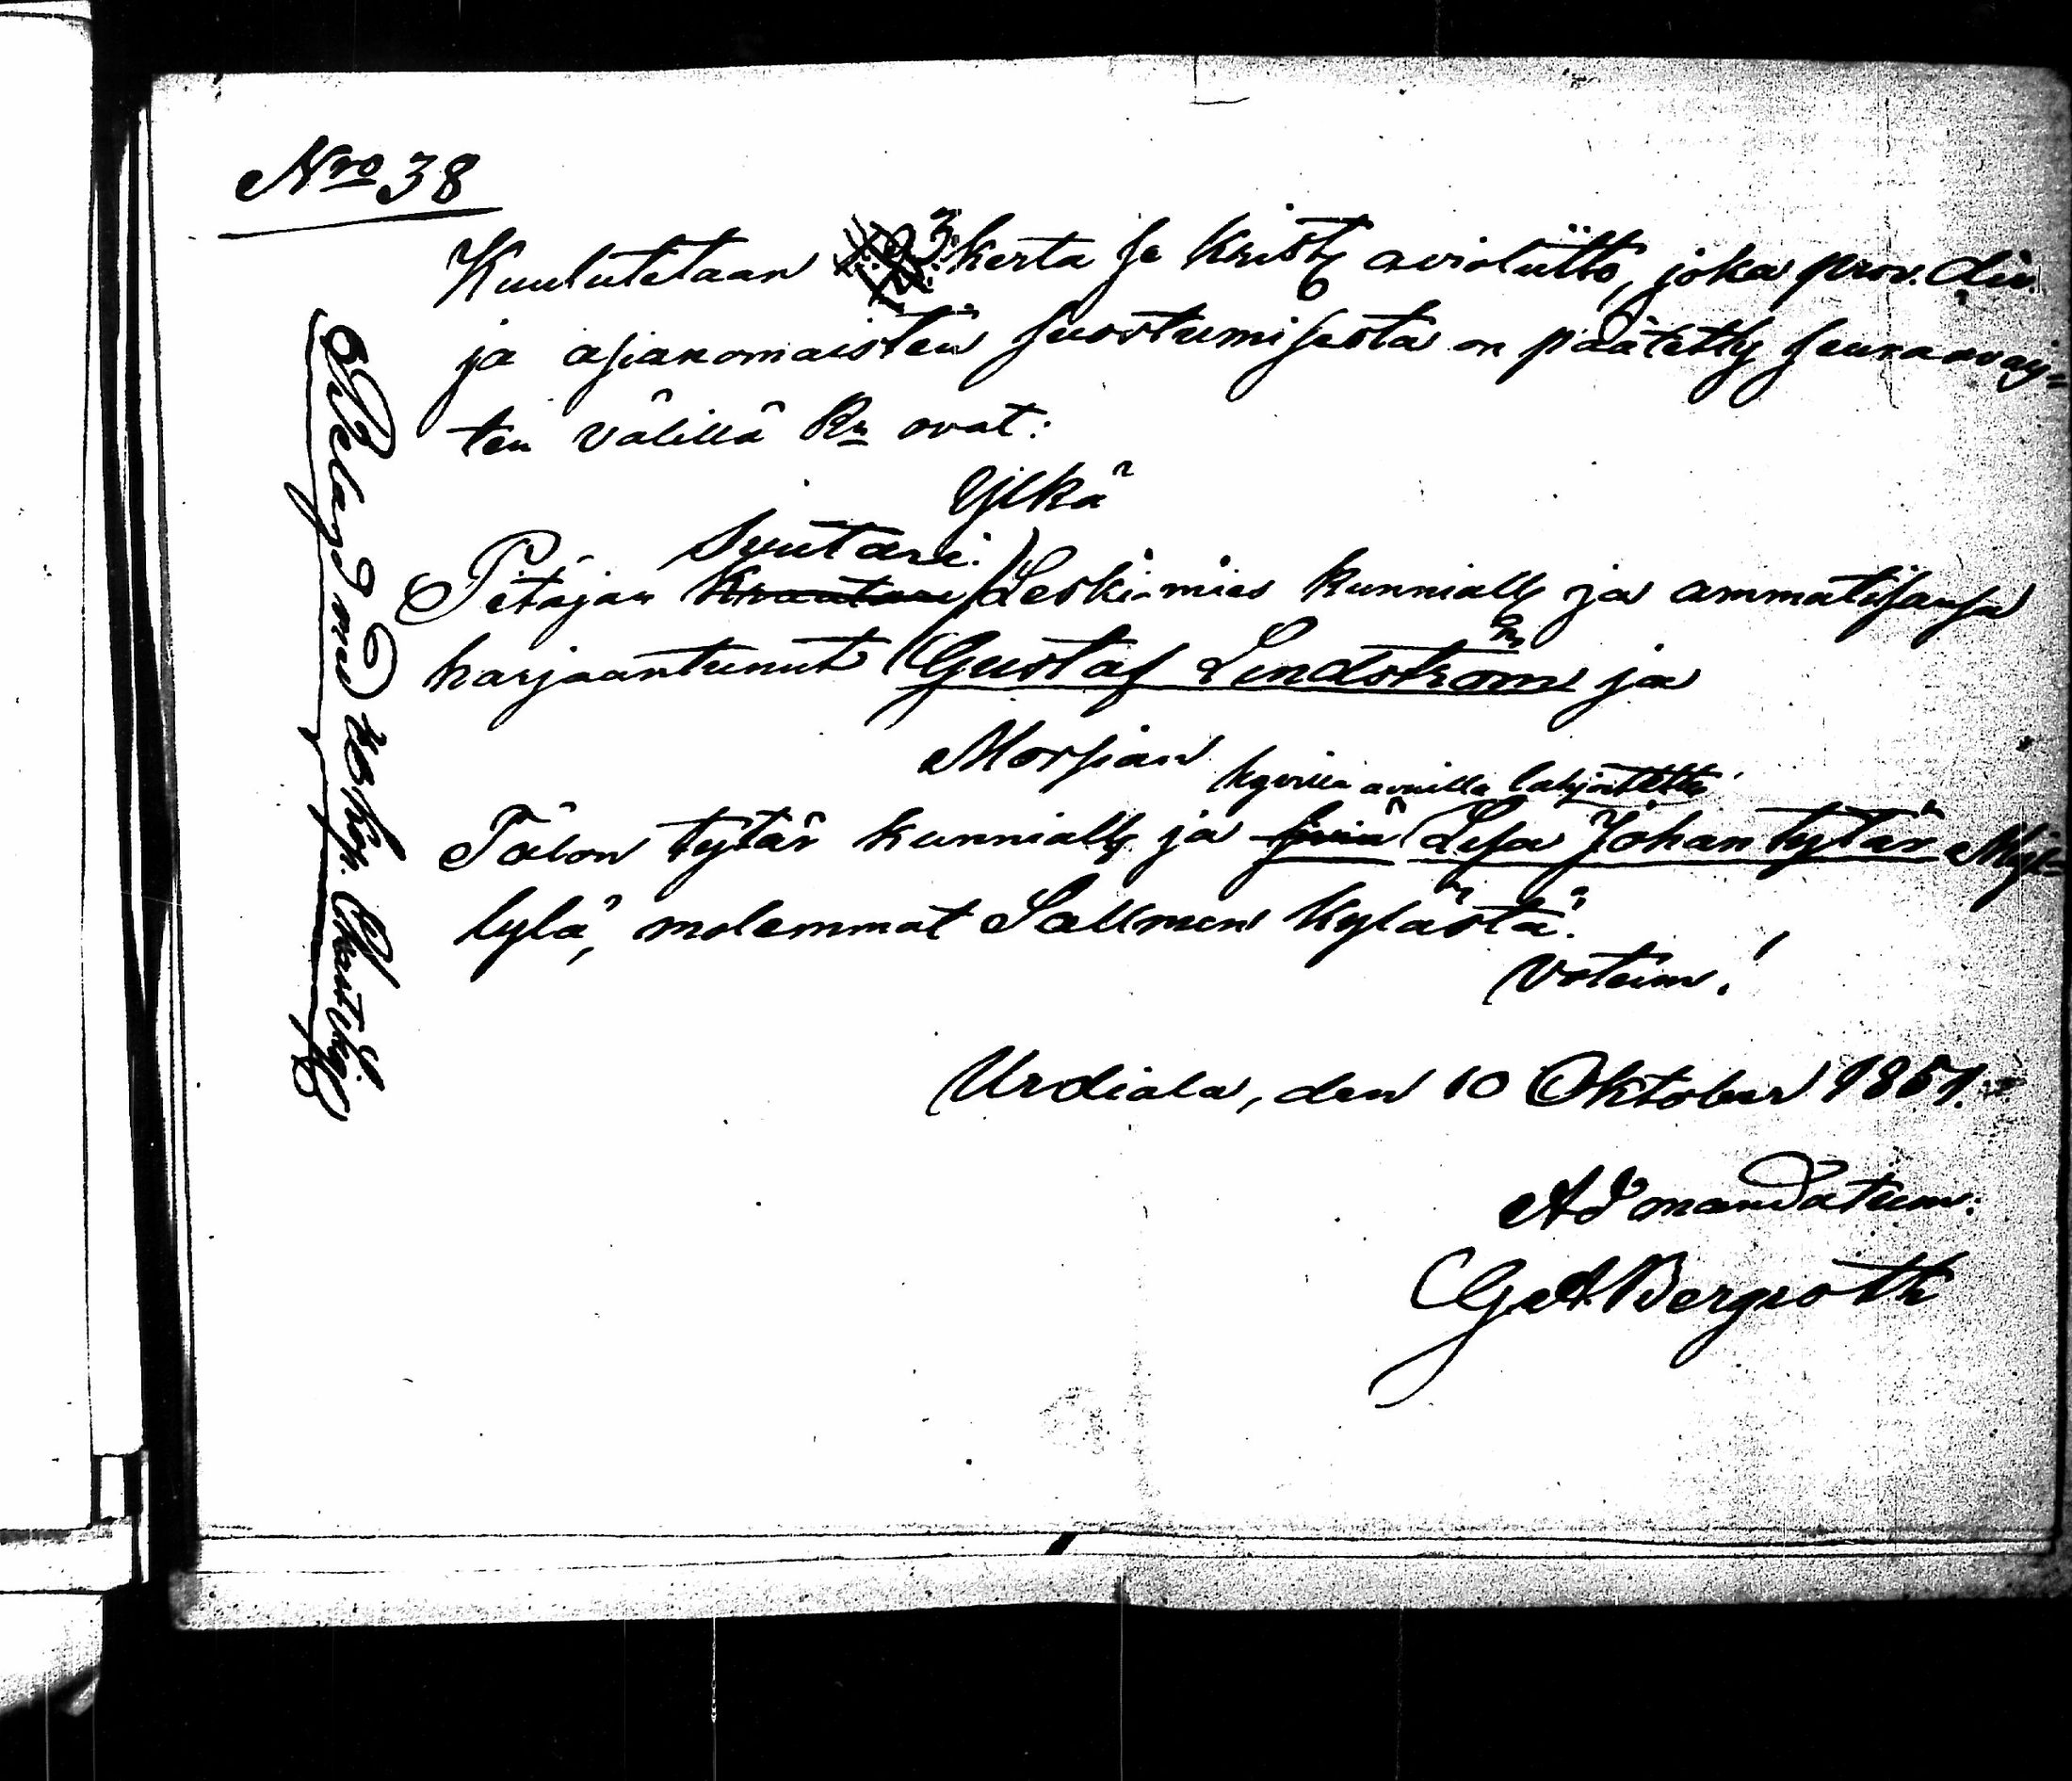 Nro 38
Kuulutetaan 3: kerta se Kristg avioliitto, joka prov. div.
ja asianomaisten suostumisesta on päätetty seuraavai=
ten välillä Kn ovat:
Yjlkä
Suutari.
Pitäjän Kraatari Leski-mies kunniallg ja ammatisansa
harjaantunut Gustaf Lindström ja
Morsian
hyvillä avuilla lahjoitettu
Talon tytär kunniallg ja siviä Lisa Johan tytär Myl=
lylä, molemmat Salmen kylästä.
Votum!
Urdiala, den 10 Oktober 1851.
Ad mandatum:
G A Bergroth
Belagd med Kop. Chartækg.